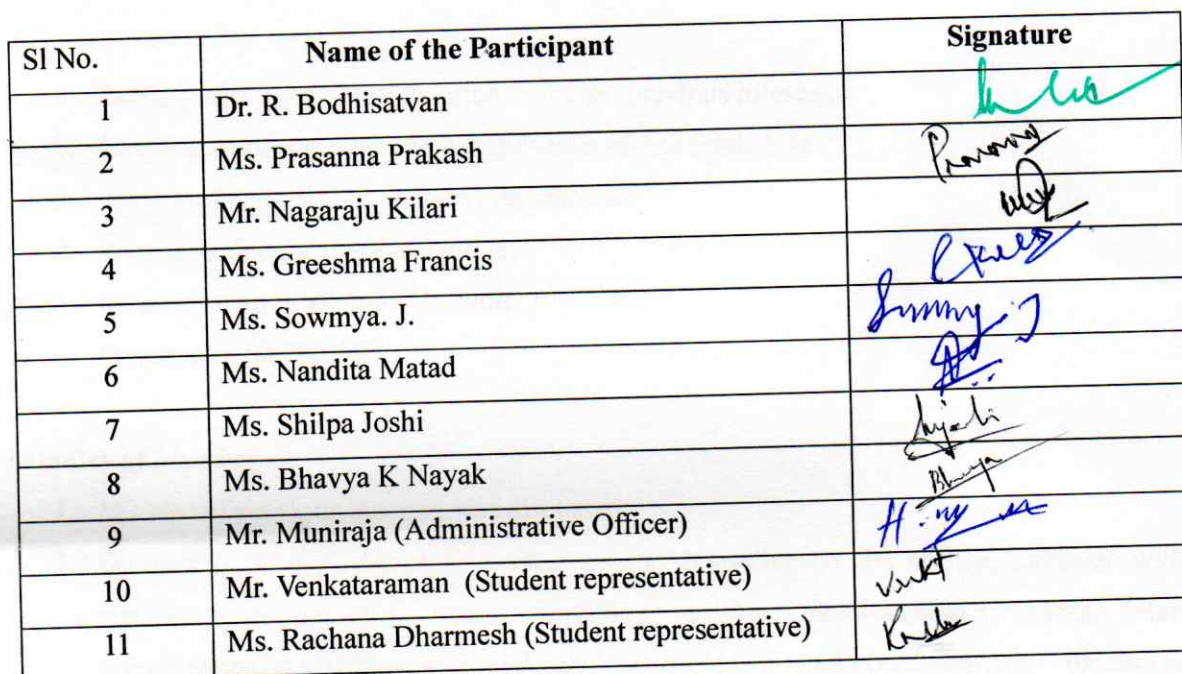 Sl No. Name of the Participant Signature
1 Dr. R. Bodhisatvan
2 Ms. Prasanna Prakash
3 Mr. Nagaraju Kilari
4 Ms. Greeshma Francis
5 Ms. Sowmya. J.
6 Ms. Nandita Matad
7 Ms. Shilpa Joshi
8 Ms. Bhavya K Nayak Bhavya
9 Mr. Muniraja (Administrative Officer)
10 Mr. Venkataraman (Student representative) Venkt
11 Ms. Rachana Dharmesh (Student representative)